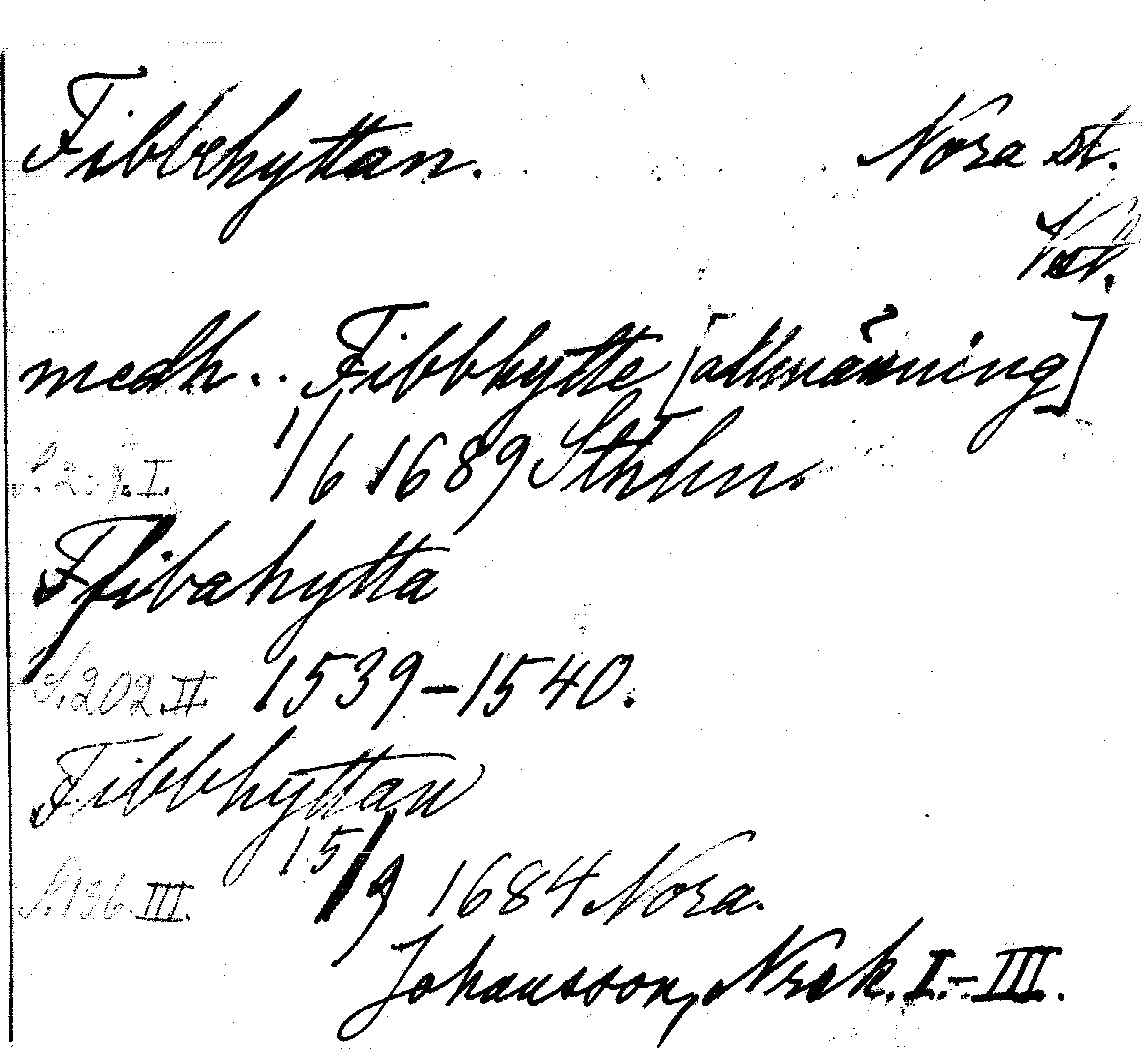 Fibbehyttan. Nora st.
Vstl.
medh .. Fibbhytte [allmänning]
1/6 1689 Sthlm.
S. 2. I.
Ffibahytta
S. 202 II 1539–1540.
Fibbhyttan
15/9 1684 Nora.
S. 136 III.
Johansson, Norak. I.–III.